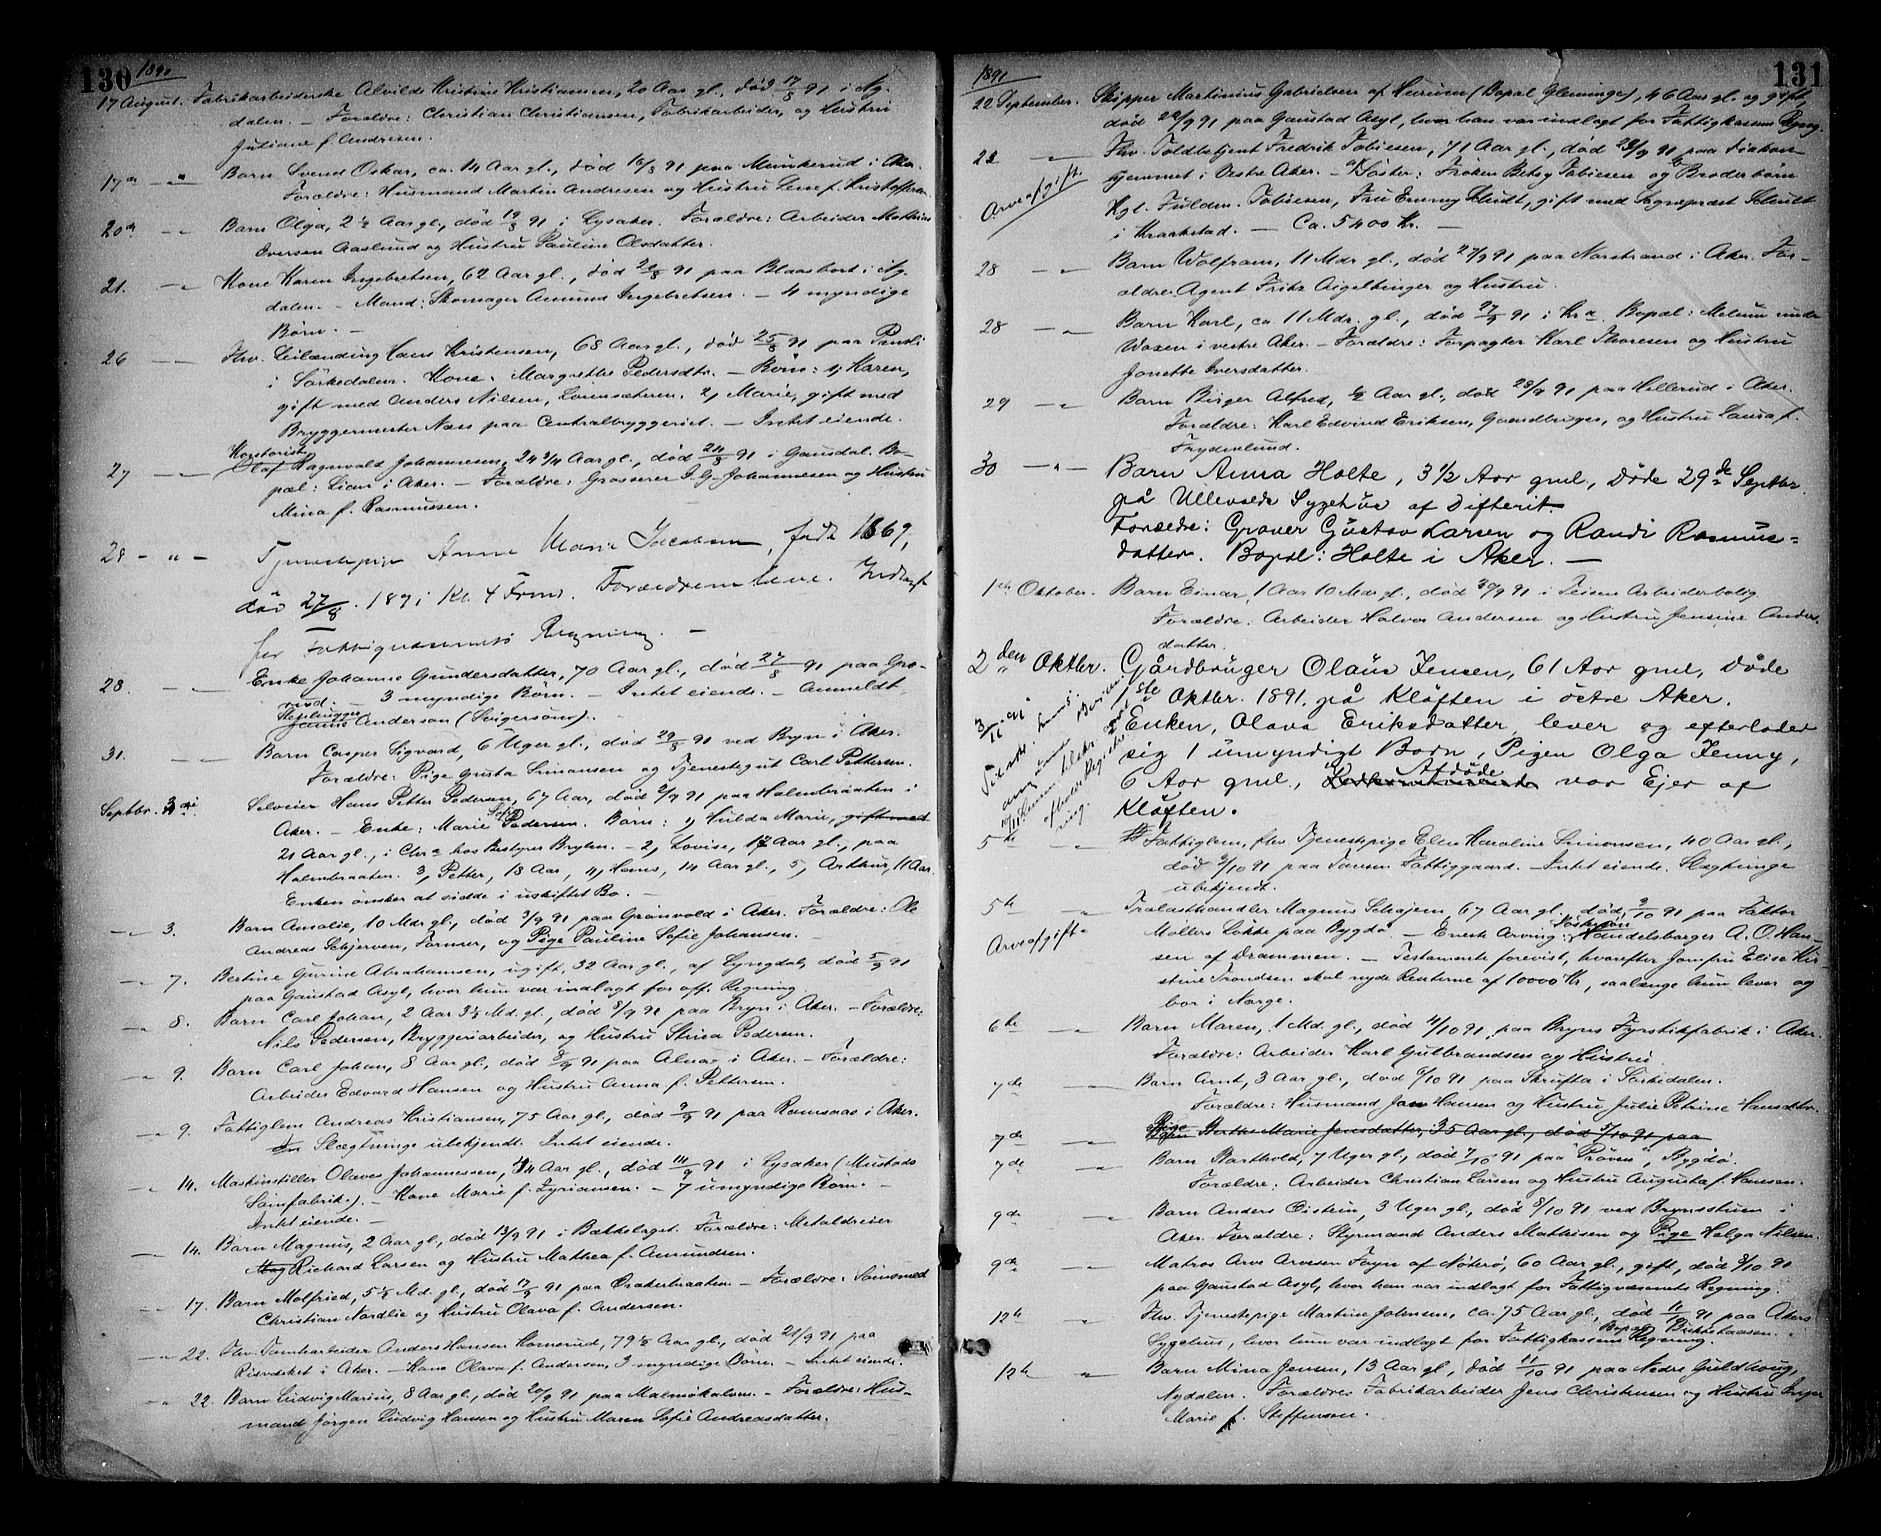 130 1891
17 August. Fabrikarbeiderske Alvilde Kristine Kristiansen, 20 Aar gl., død 17/8 91 i Ny-
dalen. – Forældre: Christian Christiansen, Fabrikarbeider, og Hustru
Juliane f. Andresen.
17de – " – Barn Svend Oskar, ca. 14 Aar gl., død 16/8 91 paa Munkerud i Aker.
Forældre: Husmand Martin Andresen og Hustru Lene f. Kristoffersen.
20de – " – Barn Olga, 2 1/2 Aar gl., død 19/8 91 i Lysaker. Forældre: Arbeider Mathias
Iversen Aaslund og Hustru Pauline Olsdatter.
21. – " – Kone Karen Ingebretsen, 62 Aar gl., død 20/8 91 paa Blaasbort i Ny-
dalen. – Mand: Skomager Amund Ingebretsen. – 4 myndige
Børn. –
26 – " – Fhv. Leilænding Hans Kristensen, 68 Aar gl., død 25/8 91 paa
i Sørkedalen. Kone: Margrethe Pedersdtr. – Børn: 1, Karen,
gift med Anders Nilsen, Lørensæteren. 2, Marie, gift med
Bryggermester Næss paa Centralbryggeriet. – Intet eiende.
Kontorist
27 – " – Olaf Ragnvald Johannesen, 24 3/4 Aar gl., død 24/8 91 i Gausdal. Bo-
pæl: Lian i Aker. – Forældre: Grosserer I. G. Johannesen og Hustru
Mina f. Rasmussen.
28 – " – Tjenestepige Anne Marie Jacobsen, født 1869,
død 27/8 1891 Kl. 4 Frmd. Forældrene leve. Indlagt
for Fattigvæsenets Regning. –
28. – " – Enke Johanne Gundersdatter, 70 Aar gl., død 27/8 91 paa Gro-
rud. 3 myndige Børn. – Intet eiende. – Anmeldt
Stenhugger
Janne Anderson (Svigersøn).
31. – " – Barn Casper Sigvard, 6 Uger gl., død 29/8 91 ved Bryn i Aker.
Forældre: Pige Gusta Simonsen og Tjenestegut Carl Pettersen.
Septbr. 3die Selveier Hans Petter Pedersen, 67 Aar, død 2/9 91 paa Holmbraaten i
Aker. – Enke: Marie Sofie Pedersen. Børn: 1, Hulda Marie, gift med
21 Aar gl., i Chra hos Bestyrer Brylen. – 2, Lovise, 17 Aar gl., paa
Holmbraaten. 3, Petter, 18 Aar, 4, Hans, 14 Aar gl., 5, Arthur, 11 Aar.
Enken ønsker at sidde i uskiftet Bo. –
– " – 3. Barn Amalie, 10 Mdr. gl., død 3/9 91 paa Grønvold i Aker. Forældre: Ole
Andreas Schjerven, Former, og Pige Pauline Sofie Johansen. –
– " – 7. Bertine Gurine Abrahamsen, ugift, 32 Aar gl., af Lyngdal, død 5/9 91
paa Gaustad Asyl, hvor hun var indlagt for off. Regning.
– " – 8. Barn Carl Johan, 2 Aar 3 1/2 Md. gl., død 8/9 91 paa Bryn i Aker. – Forældre:
Nils Pedersen, Bryggeriarbeider, og Hustru Stina Pedersen.
– " – 9. Barn Carl Johan, 8 Aar gl., død 8/9 91 paa Alnas i Aker. – Forældre:
Arbeider Edvard Hansen og Hustru Anna f. Pettersen.
– " – 9. Fattiglem Andreas Kristiansen, 75 Aar gl., død 9/9 91 paa Romsaas i Aker.
Slægtninge ubekjendt. Intet eiende.
– " – 14. Maskinstiller Olaves Johannessen, 44 Aar gl., død 14/9 91 i Lysaker (Mustads
Sømfabrik). – Kone Marie f. Zyriansen. – 7 umyndige Børn. –
Intet eiende. –
– 14. Barn Magnus, 2 Aar gl., død 13/9 91 i Bækkelaget. Forældre: Metaldreier
Mag Richard Larsen og Hustru Mathea f. Amundsen.
– " – 17. Barn Molfried, 5 1/2 Md. gl., død 17/9 91 paa Orakerbraaten – Forældre: Sømsmed
Christian Nordlie og Hustru Olava f. Andersen.
– " – 22. Fhv. Tomtearbeider Anders Hansen Homerud, 79 1/2 Aar gl., død 21/9 91 paa
Risvøkket i Aker. – Kone Olava f. Andersen, 3 myndige Børn. – Intet eiende.
– " 22. Barn Ludvig Marius, 8 Aar gl., død 20/9 91 paa Malmøkalven. – Forældre: Hus-
mand Jørgen Ludvig Hansen og Hustru Maren Sofie Andreasdatter.
1891 131
22 September. Skipper Martinius Gabrielsen af Hurum (Bopæl Glemminge), 46 Aar gl. og gift,
død 22/9 91 paa Gaustad Asyl, hvor han var indlagt for Fattigkassens Regng.
23 – " – Fhv. Toldbetjent Fredrik Tobiesen, 71 Aar gl., død 23/9 91 paa Diakon-
hjemmet i Vestre Aker. – Søster: Frøken Betsy Tobiesen og Broderbørn
Arveafgift. Kgl. Fuldm. Tobiesen, Fru Emmy Schult, gift med Sogneprest Schult
i Kraakstad. – Ca. 5400 Kr. –
28 – " – Barn Wolfram, 11 Mdr gl., død 27/9 91 paa Norstrand i Aker. For-
ældre: Agent Fritz Aigeltinger og Hustru.
28 – " – Barn Karl, ca. 11 Mdr. gl., død 27/9 91 i Kra. Bopæl: Melum under
Voxen i vestre Aker. – Forældre: Forpagter Karl Thoresen og Hustru
Jonette Iversdatter.
29 – " – Barn Birger Alfred, 1/2 Aar gl., død 28/9 91 paa Hellerud i Aker.
Forældre: Karl Edvind Eriksen, Gaardbruger, og Hustru Laura f.
Frydenlund.
30 – " – Barn Anna Holte, 3 1/2 Aar gml, døde 29de Septbr.
på Ullevåls Sygehus af Difterit.
Forældre: Graver Gustav Larsen og Randi Rasmus-
datter. Bopæl: Holte i Aker. –
1ste Oktober. Barn Einar, 1 Aar 10 Mdr gl., død 30/9 91 i Teiens Arbeiderbolig.
Forældre: Arbeider Halvor Andersen og Hustru Jensine Anders-
datter.
2den Oktbr. Gårdbruger Olaus Jensen, 61 Aar gml, døde
1ste Oktbr. 1891 på Kløften i østre Aker.
Enken, Olava Eriksdatter, lever og efterlader
sig 1 umyndigt Barn, Pigen Olga Jenny,
6 Aar gml, Afdøde var Ejer af
Kløften.
5te – " – Fattiglem, fhv. Tjenestepige Elen Karoline Simonsen, 40 Aar gl.,
død 2/10 91 paa Tonsen Fattiggaard. – Intet eiende. Slægtninge
ubekjendt.
5te " Trælasthandler Magnus Schajem, 67 Aar gl., død 3/10 91 paa Faktor
Arveafgift. Møllers Løkke paa Bygdø. – Eneste Arving: Søstersøn Handelsborger A. O. Han-
sen af Drammen. – Testamente forevist, hvorefter Jomfru Elise Kir-
stine Trondsen skal nyde Renterne af 10000 Kr, saalænge hun lever og
bor i Norge.
6te – " – Barn Maren, 1 Md. gl., død 4/10 91 paa Bryns Fyrstikfabrik i Aker.
Forældre: Arbeider Karl Gulbrandsen og Hustru.
7de – " – Barn Arnt, 3 Aar gl., død 6/10 91 paa Skrufta i Sørkedalen.
Forældre: Husmand Jan Hansen og Hustru Julie Petrine Hansdtr.
7de – " – Pige Berthe Marie Jensdatter, 35 Aar gl., død 5/10 91 paa
7de – " – Barn Barthold, 7 Uger gl., død 7/10 91 paa "Prøven", Bygdø.
Forældre: Arbeider Christian Larsen og Hustru Augusta f. Hansen.
9de – " – Barn Anders Øistein, 3 Uger gl., død 8/10 91 ved Brynsstuen i
Aker. Forældre: Styrmand Anders Mathisen og Pige Helga Nilsen.
9de – " – Matros Arve Arvesen Foyn af Nøterø, 60 Aar gl., gift, død 8/10 91
paa Gaustad Asyl, hvor han var indlagt for Fattigvæsenets Regning.
12te – " – Fhv. Tjenestepige Martine Johnsen, ca. 75 Aar gl., død 11/10 91 paa Akers
Sygehus, hvor hun var indlagt for Fattigkassens Regning. Bopæl
12te " Barn Mina Jensen, 13 Aar gl., død 11/10 91 paa Nedre Guldhaug,
Nydalen. Forældre: Fabrikarbeider Jens Christensen og Hustru Inger
Marie f. Steffensen.